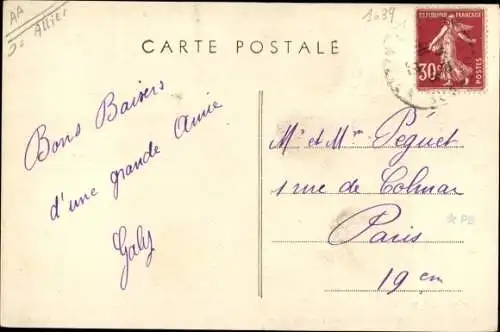 AA
Allier
1039
CARTE POSTALE
REPUBLIQUE FRANÇAISE
30c
POSTES
Bons Baisers
d'une grande Amie
Gaby
Mr et Mme Péguet
1 rue de Colmar
Paris
19 em
* PB